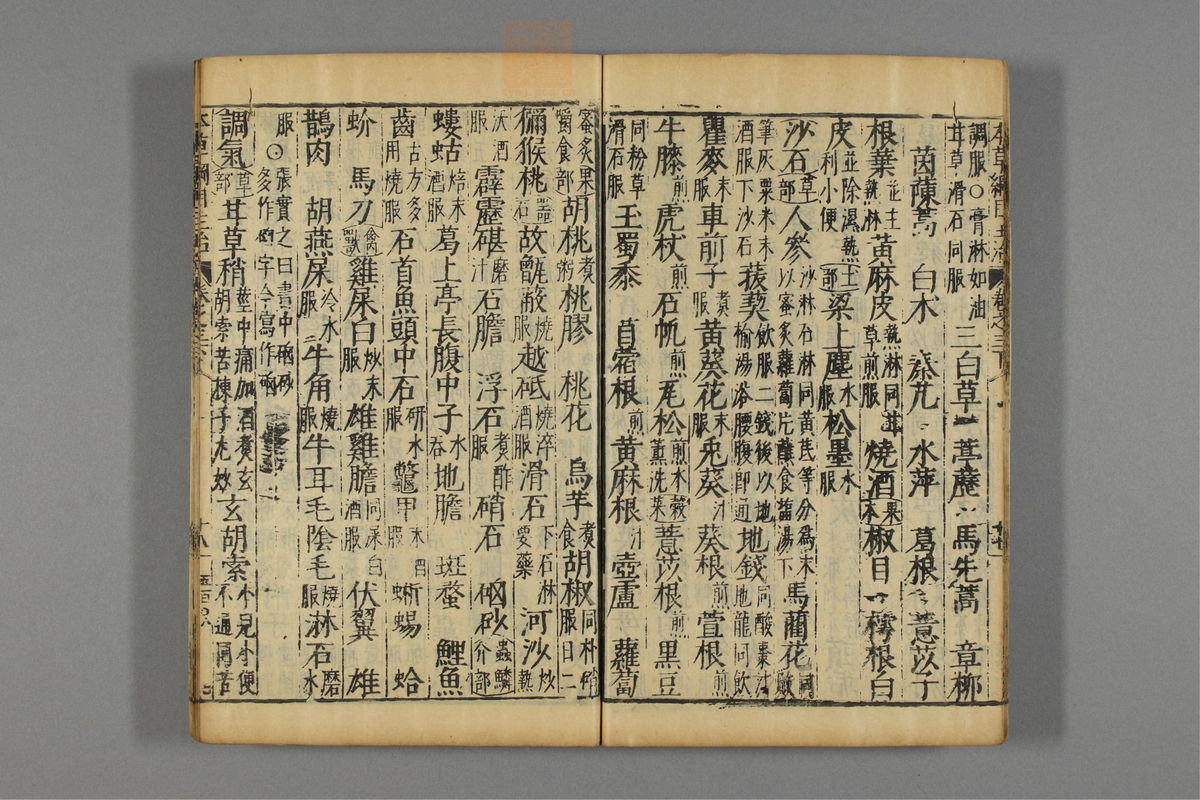 調服○膏淋如油 甘草滑石同服 三白草 葶藶 馬先蒿 章柳
茵蔯蒿 白朮 秦艽 水萍 葛根 薏苡子
根葉並主熱淋 黃麻皮熱淋同甘草煎服 燒酒果木 椒目 樗根白
皮並除濕熱利小便 土部 梁上塵水服 松墨水服
沙石草部 人參沙淋石淋同黃芪等分爲末以蜜炙蘿蔔片蘸食鹽湯下 馬藺花同
筆灰粟米末酒服下沙石 菝葜飲服二錢後以地榆湯浴腰腹即通 地錢同酸棗汁地龍同飲
瞿麥末服 車前子煮服 黃葵花末服 兎葵汁 葵根煎 萱根煎
牛膝煎 虎杖煎 石帆煎 瓦松煎水薰洗 穀菜 薏苡根煎 黑豆
同粉草滑石服 玉蜀黍 苜蓿根煎 黃麻根汁 壺盧 蘿蔔
蜜炙嚼食 果部 胡桃煮粥 桃膠 桃花 烏芋煮食 胡椒同朴硝服日二
獼猴桃 器石 故甑蔽燒服 越砥燒淬酒服 滑石下石淋要藥 河沙炒熱
沃酒服 霹靂碪磨汁 石膽 浮石煮酢服 硝石 硇砂 蟲鱗介部
螻蛄焙末酒服 葛上亭長腹中子水吞 地膽 斑蝥 鯉魚
齒古方多用燒服 石首魚頭中石研水服 鼈甲末酒服 蜥蜴 蛤
蚧 馬刀 禽獸 雞屎白炒末服 雄雞膽同屎白酒服 伏翼 雄
鵲肉 胡燕屎冷水服 牛角燒服 牛耳毛陰毛燒服 淋石磨水
服 ○張實之曰書中硇砂多作𥐻字今寫作硇
調氣草部 甘草稍莖中痛加酒煮玄胡索苦楝子尤妙 玄胡索小兒小便不通同苦